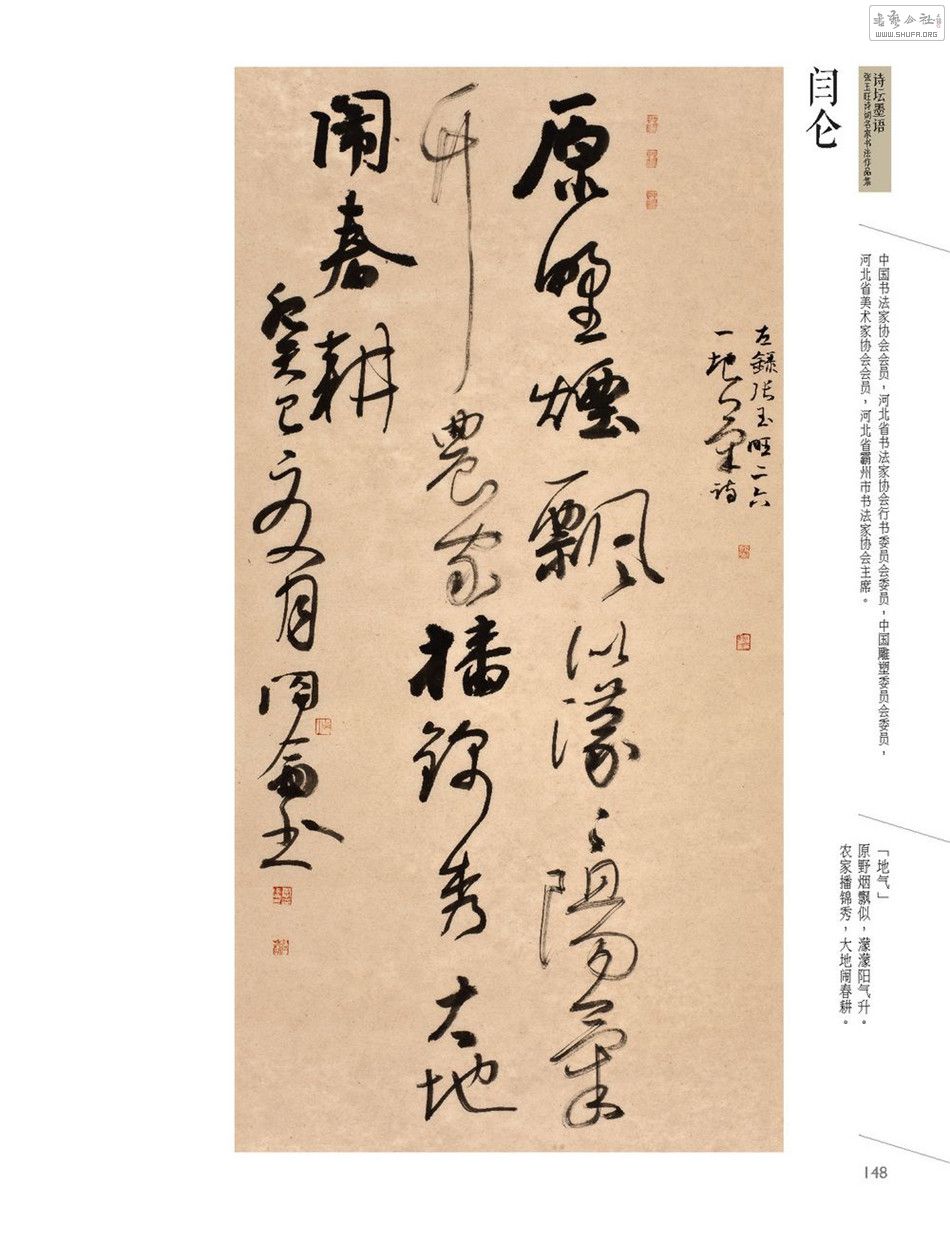 书艺公社
WWW.SHUFA.ORG
诗坛墨语
张玉旺诗词名家书法作品集
闫仑
中国书法家协会会员，河北省书法家协会行书委员会委员，中国雕塑委员会委员，
河北省美术家协会会员，河北省霸州市书法家协会主席。
「地气」
原野烟飘似，濛濛阳气升。
农家播锦秀，大地闹春耕。
左録张玉旺二六
一地气诗
原野煙飘似濛〻陽氣
升農家播錦秀大地
闹春耕
癸巳文月闫侖书
148